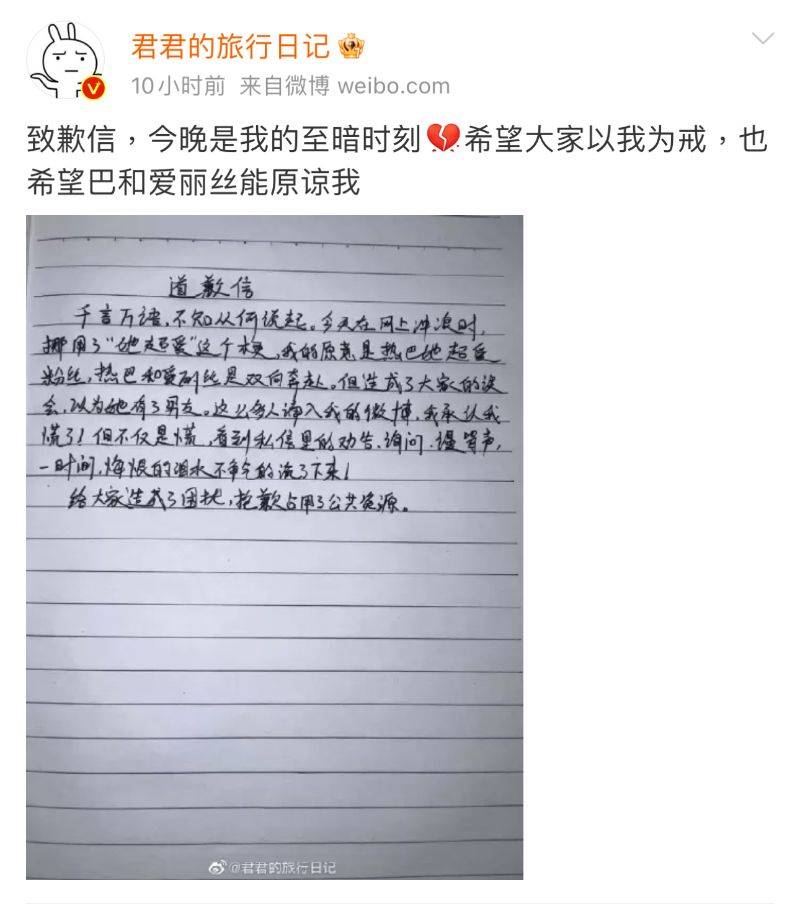 君君的旅行日记
10小时前 来自微博 weibo.com
致歉信，今晚是我的至暗时刻💔希望大家以我为戒，也
希望巴和爱丽丝能原谅我
道歉信
千言万语,不知从何说起。今天在网上冲浪时,
挪用了“她超爱”这个梗,我的原意是热巴她超爱
粉丝,热巴和爱丽丝是双向奔赴。但造成了大家的误
会,以为她有了男友。这么多人涌入我的微博,我承认我
慌了!但不仅是慌,看到私信里的劝告、询问、谩骂声,
一时间,悔恨的泪水不争气的流了下来!
给大家造成了困扰,抱歉占用了公共资源。
@君君的旅行日记